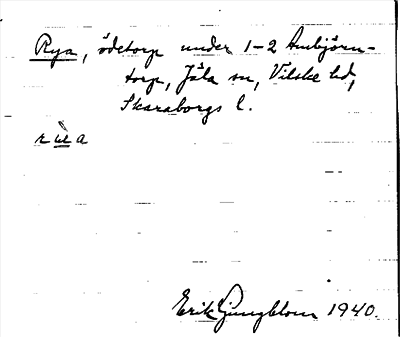 Rya, ödetorp under 1-2 Ambjörn-
torp, Jäla sn, Vilske hd,
Skaraborgs l.
Erik Ljungblom 1940.